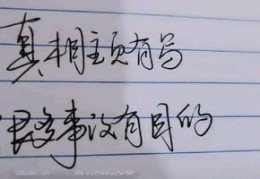 真相主页有写
很多事没有目的